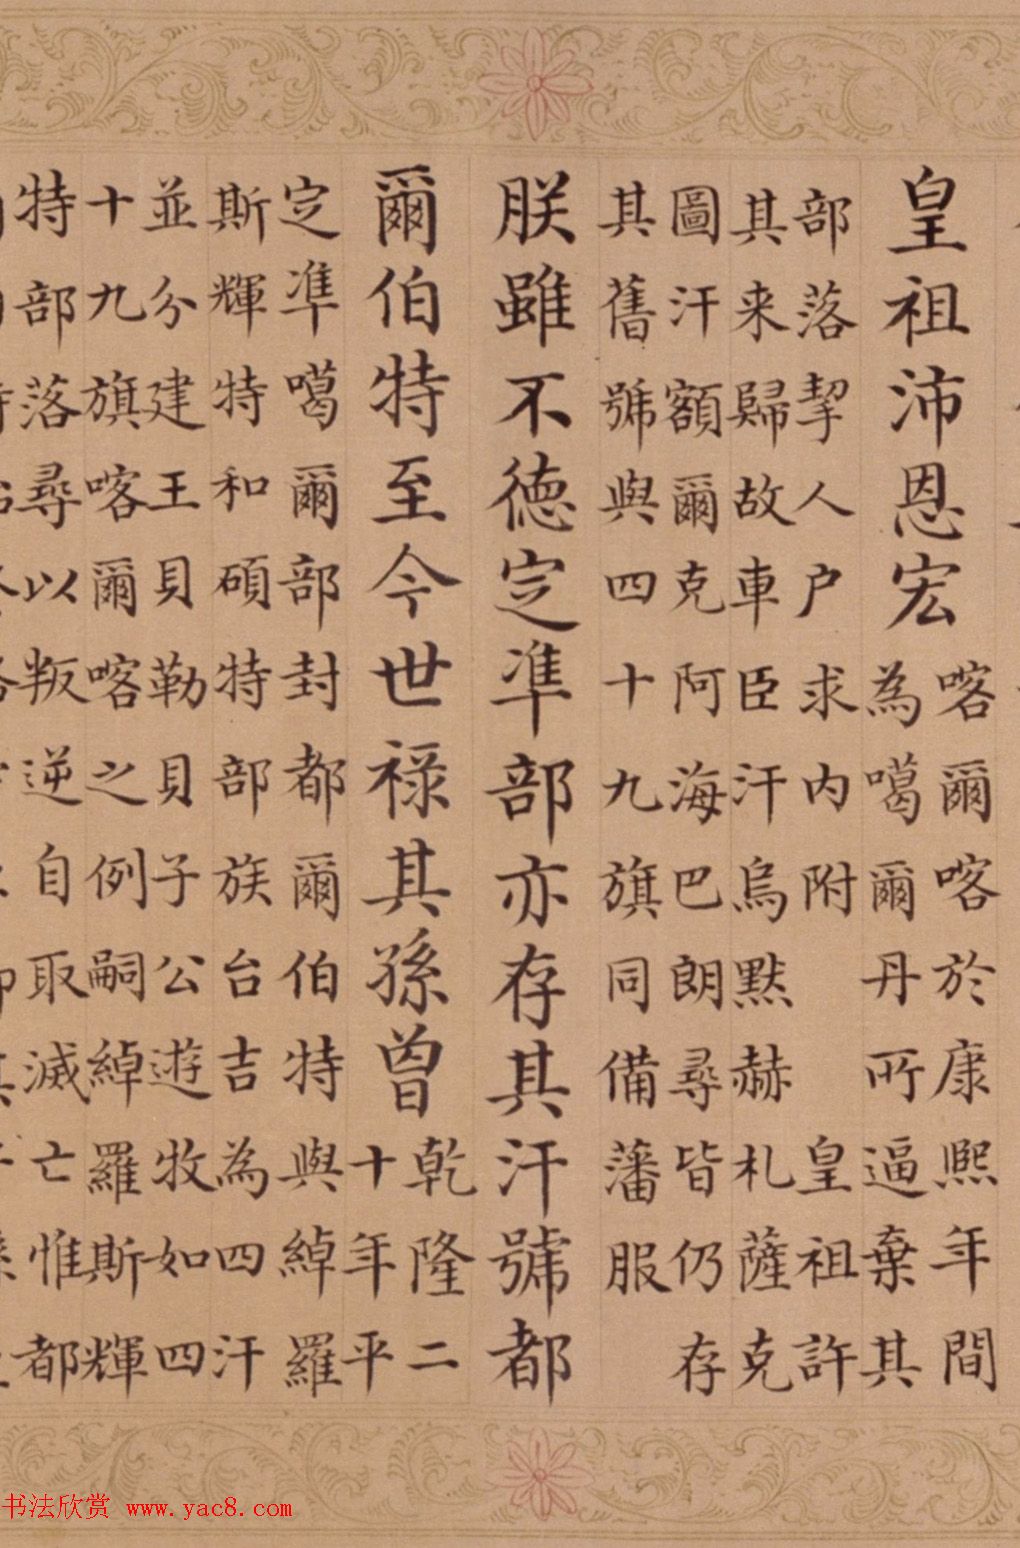 皇祖沛恩宏
喀爾喀於康熙年間
為噶爾丹所逼棄其
部落挈人户求内附 皇祖許
其来歸故車臣汗烏黙赫札薩克
圖汗額爾克阿海巴朗尋皆仍存
其舊號與四十九旗同備藩服
朕雖不德定凖部亦存其汗號都
爾伯特至今世禄其孫曾
乾隆二
十年平
定凖噶爾部封都爾伯特與綽羅
斯輝特和碩特部族台吉為四汗
並分建王貝勒貝子公遊牧如四
十九旗喀爾喀之例嗣綽羅斯輝
特部落尋以叛逆自取滅亡惟都
书法欣赏 www.yac8.com